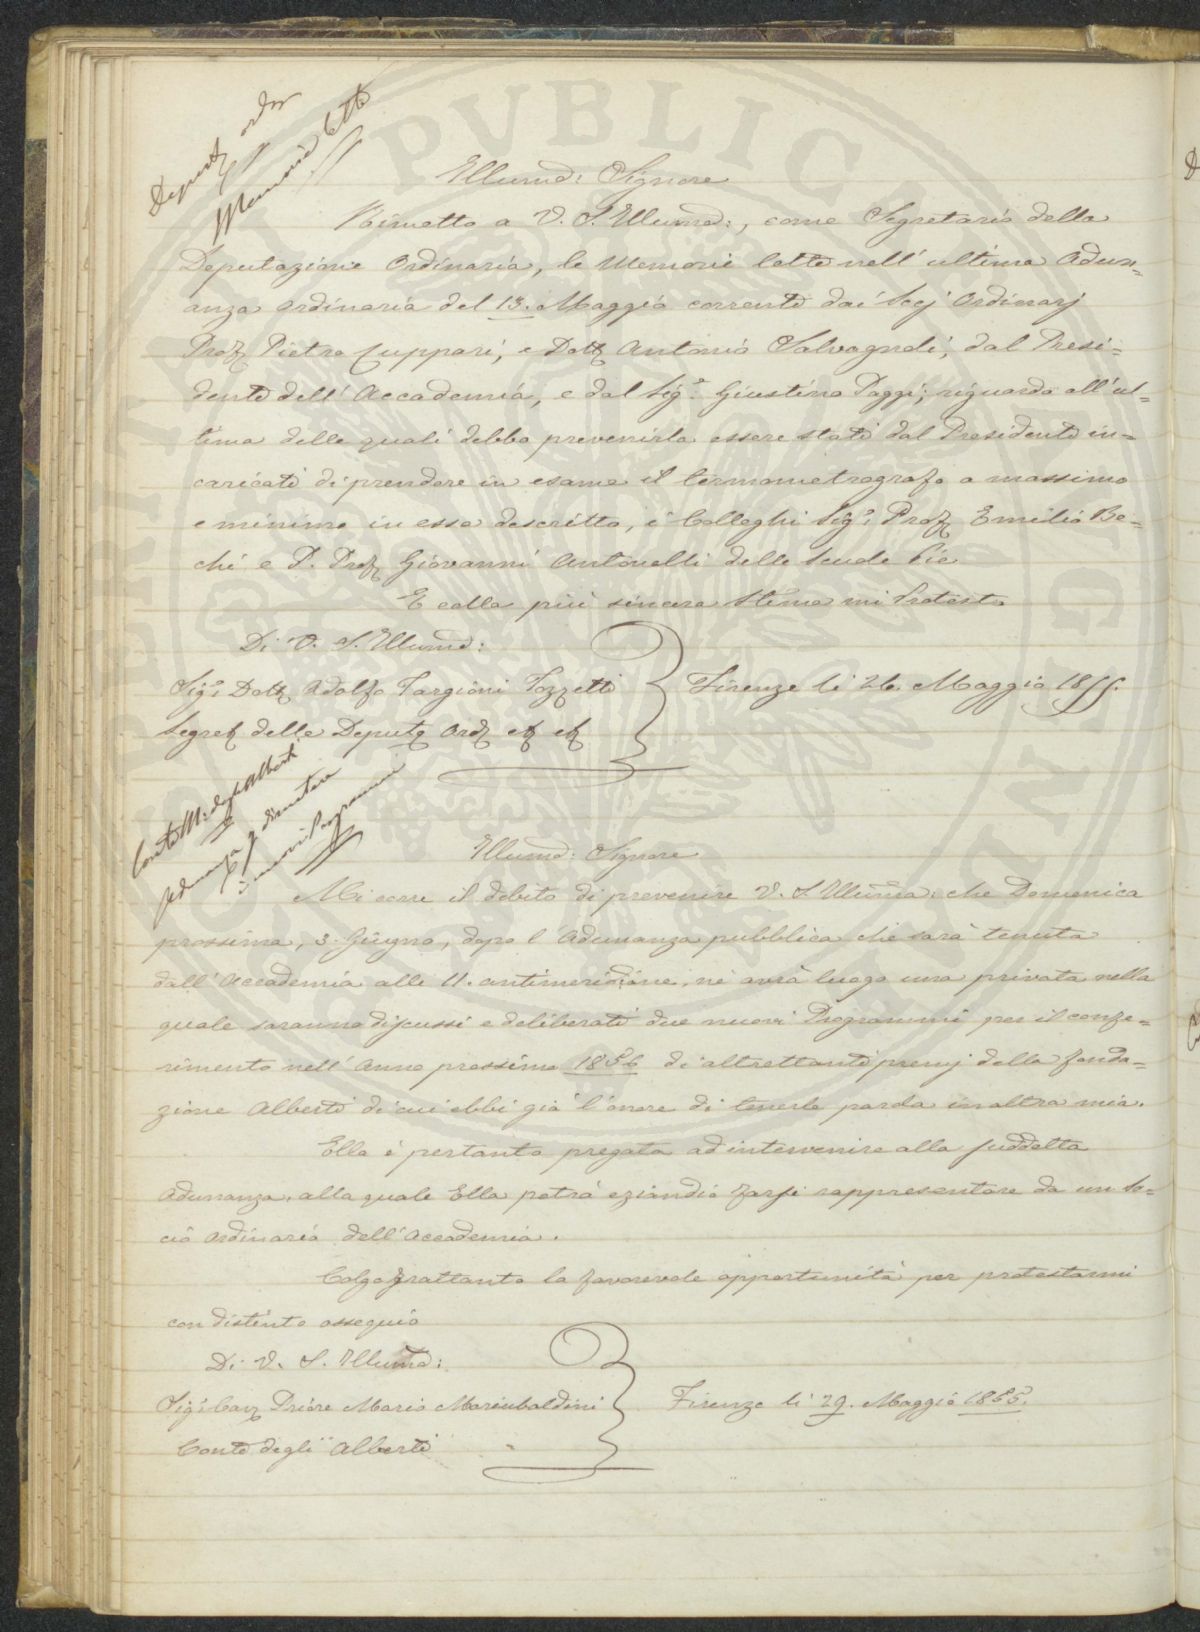 Deput. ord.
Memorie lette
Illumo: Signore
Rimetto a V. S. Illuma:, come Segretario della
Deputazione ordinaria, le Memorie lette nell' ultima Adun=
anza ordinaria del 13. Maggio corrente dai Socj Ordinarj
Prof. Pietro Cuppari, e Dott. Antonio Salvagnoli, dal Presi=
dente dell' Accademia, e dal Sigr. Giustino Paggi; riguardo all' ul=
tima delle quali debbo prevenirla essere stati dal Presidente in=
caricati di prendere in esame il termometrografo a massimo
e minimo in essa descritto, i Colleghi Sigri Prof. Emilio Be=
chi e P. Prof. Giovanni Antonelli delle Scuole Pie
E colla più sincera stima mi Protesto
Di V. S. Illuma:
Sigr. Dott. Adolfo Targioni Tozzetti
Firenze li 26. Maggio 1855.
Segret. della Deput. Ord. ec. ec.
Conte M. degli Alberti
Adunanza p. discutere
i nuovi Programmi
Illumo: Signore
Mi corre il debito di prevenire V. S. Illuma: che Domenica
prossima, 3. Giugno, dopo l' Adunanza pubblica che sarà tenuta
dall' Accademia alle 11. antimeridiane, ne avrà luogo una privata nella
quale saranno discussi e deliberati due nuovi Programmi per il confe=
rimento nell' Anno prossimo 1856 di altrettanti premj della fonda=
zione Alberti di cui ebbi già l' onore di tenerle parola in altra mia.
Ella è pertanto pregata ad intervenire alla suddetta
Adunanza, alla quale Ella potrà eziandio farsi rappresentare da un So=
cio ordinario dell' Accademia.
Colgo frattanto la favorevole opportunità per protestarmi
con distinto ossequio
Di V. S. Illuma:
Sigr. Cav. Priore Mario Morubaldini
Firenze li 29. Maggio 1855.
Conte degli Alberti